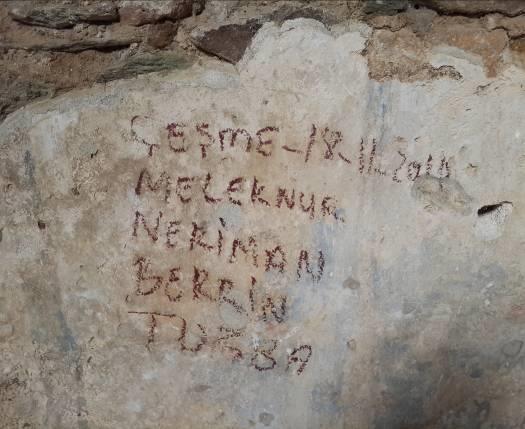 ÇEŞME-18-11-2010
MELEKNUR
NERİMAN
BERRİN
TUĞBA